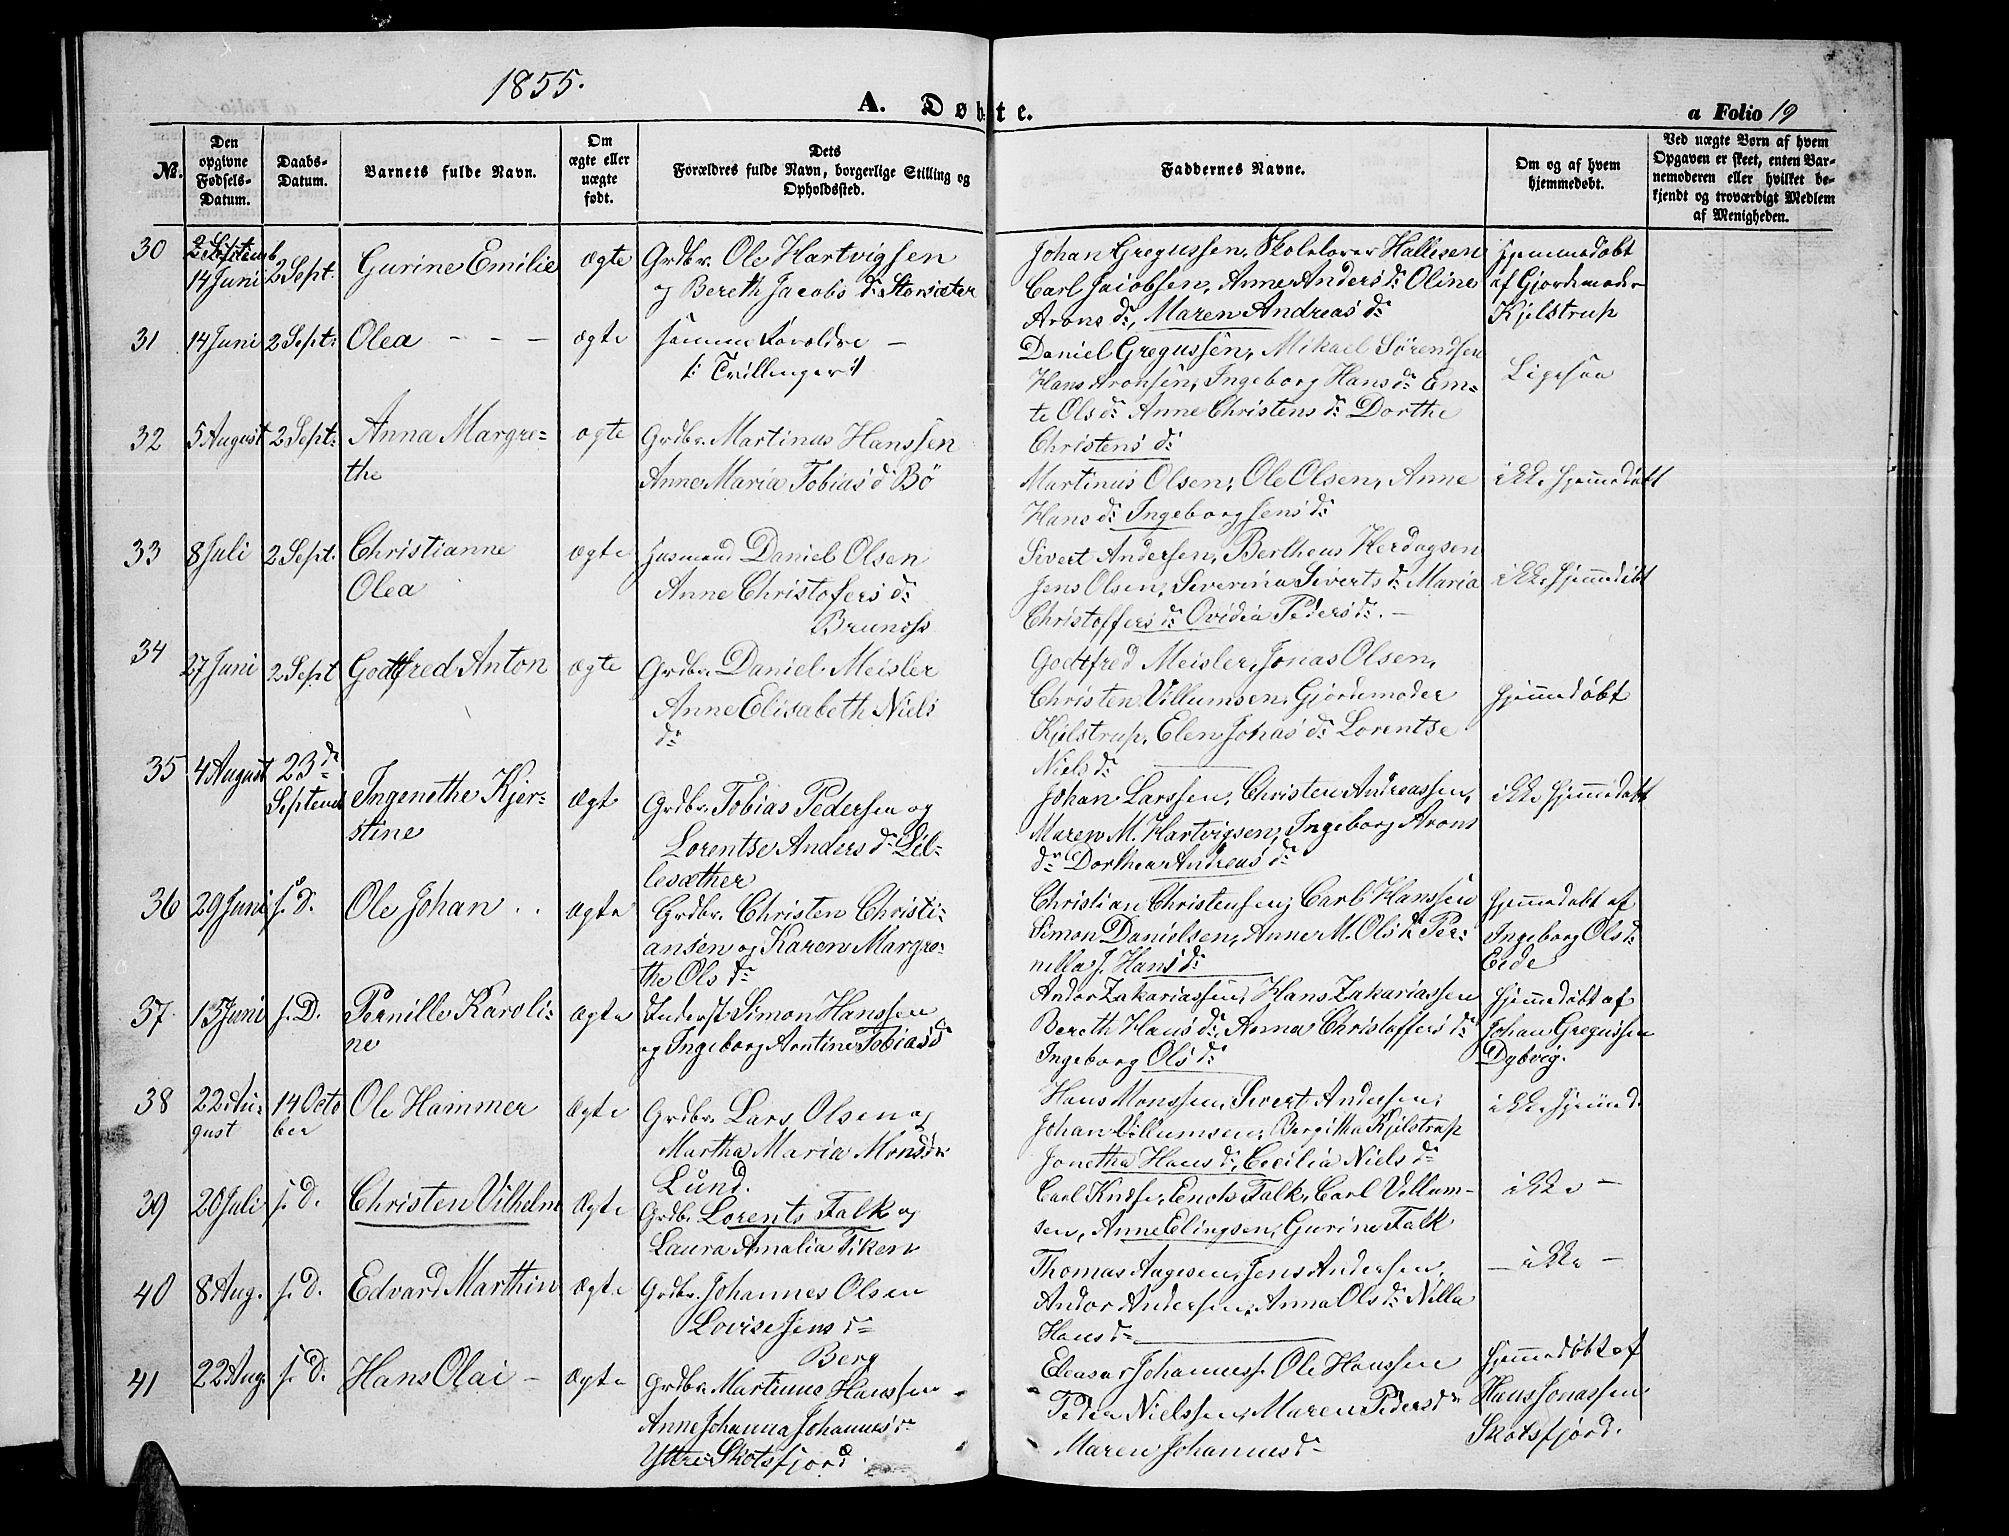 1855.
A. Døbte.
a Folio 19
№.
Den opgivne Fødsels-Datum.
Daabs-Datum.
Barnets fulde Navn.
Om ægte eller uægte født.
Dets Forældres fulde Navn, borgerlige Stilling og Opholdssted.
Faddernes Navne.
Om og af hvem hjemmedøbt.
Ved uægte Børn af hvem Opgaven er skeet, enten Barnemoderen eller hvilket bekjendt og troværdigt Medlem af Menigheden.
30 14 Juni 2 Sept. Gurine Emilie ægte Grdbr. Ole Hartvigsen
og Bereth Jacobs dr. Storsæter
Johan Gregussen, Skolelærer Hallesen
Carl Jacobsen, Anne Anders dr. Oline
Arons dr., Maren Andreas dr.
Hjemmedøbt
af Gjordemoder
Kjelstrup
31 14 Juni 2 Sept. Olea - - - ægte samme Forældre -
/: Tvillinger :/
Daniel Gregussen, Mikael Sørendsen
Hans Aronsen, Ingeborg Hans dr. Em-
te Ols dr. Anne Christens dr. Dorthe
Christens dr.
Ligesaa
32 5 August 2 Sept. Anna Margre-
the
ægte Grdbr. Martinus Hanssen
Anne Maria Tobias d. Bö
Martinus Olsen, Ole Olsen, Anne
Hans dr. Ingeborg Jens dr.
ikke hjemmedøbt
33 8 Juli 2 Sept. Christianne
Olea
ægte Husmand Daniel Olsen
Anne Christofers dr.
Sivert Andersen, Bertheus Herdagsen
Jens Olsen, Severina Siverts dr. Maria
Christoffers dr. Ovidia Peders dr. -
ikke hjemmedøbt
34 27 Juni 2 Sept Godtfred Anton ægte Grdbr. Daniel Meisler
Anne Elisabeth Niels
dr.
Godtfred Meisler, Jonas Olsen,
Christen Villumsen, Gjordemoder
Kjelstrup, Elen Jonas dr. Lorentse
Niels dr.
hjemmedøbt
35 4 August 23de
Septemb
Ingenethe Kjer-
stine
Ægte Grdbr. Tobias Pedersen og
Lorentse Anders dr. Lil-
lesæther
Johan Larssen, Christen Andreassen,
Maren M. Hartvigsen, Ingeborg Arons
dr. Dorthea Andreas dr.
ikke hjemmedøbt
36 29 Juni s. D. Ole Johan . . Ægte Grdbr. Christen Christi-
ansen og Karen Margre-
the Ols dr.
Christian Christensen, Carl Hanssen
Simon Danielsen, Anne M. Ols dr. Per-
nilla J. Hans dr.
hjemmedøbt af
Ingeborg Ols dr.
Eide
37. 15 Juni s. D. Pernille Karoli-
ne
Ægte Inderst Simon Hanssen
og Ingeborg Arntine Tobias dr.
Andor Zakariassen, Hans Zakariassen
Bereth Hans dr. Anna Christoffers dr.
Ingeborg Ols dr.
hjemmedøbt af
Johan Gregussen
Dybvig.
38 22 Au-
gust
14 Octo
ber
Ole Hammer Ægte Grdbr. Lars Olsen og
Martha Maria Mons dr.
Lund.
Hans Monssen, Sivert Andersen,
Johan Villumsen, Bergitha Kjelstrup
Jonetha Hans dr. Cecilia Niels dr.
ikke hjemmed.
39 20 Juli s. D. Christen Vilhelm Ægte Grdb. Lorents Falk og
Laura Amalia Fiken
Carl Knofse, Enok Falk, Carl Villum-
sen, Anne Elingsen, Gurine Falk
ikke -
40 8 Aug. s. D. Edvard Marthin Ægte Grdbr. Johannes Olsen
Lovise Jens dr.
Berg
Thomas Aagesen, Jens Andersen,
Andor Andersen, Anna Ols dr. Nilla
Hans dr.
- ikke -
41 22 Aug. s. D. Hans Olai - Ægte Grdbr. Martinus Hanssen
Anne Johanna Johannes dr.
Yttre Skotsfjord.
Eleasar Johanness. Ole Hanssen
Peder Nielssen, Maren Peders dr.
Maren Johannes dr.
hjemmedøbt af
Hans Jonassen.
Skotsfjord.